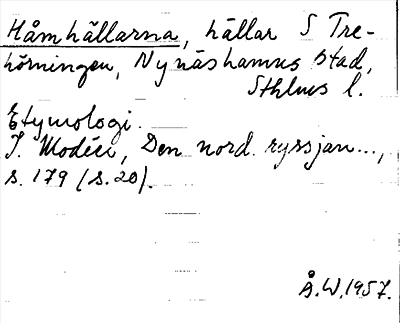 Håmhällarna, hällar S Tre-
hörningen, Nynäshamns stad,
Sthlms l.
Etymologi.
I. Modéer, Den nord. ryssjan...,
s. 179 (s. 20).
Å.W. 1957.